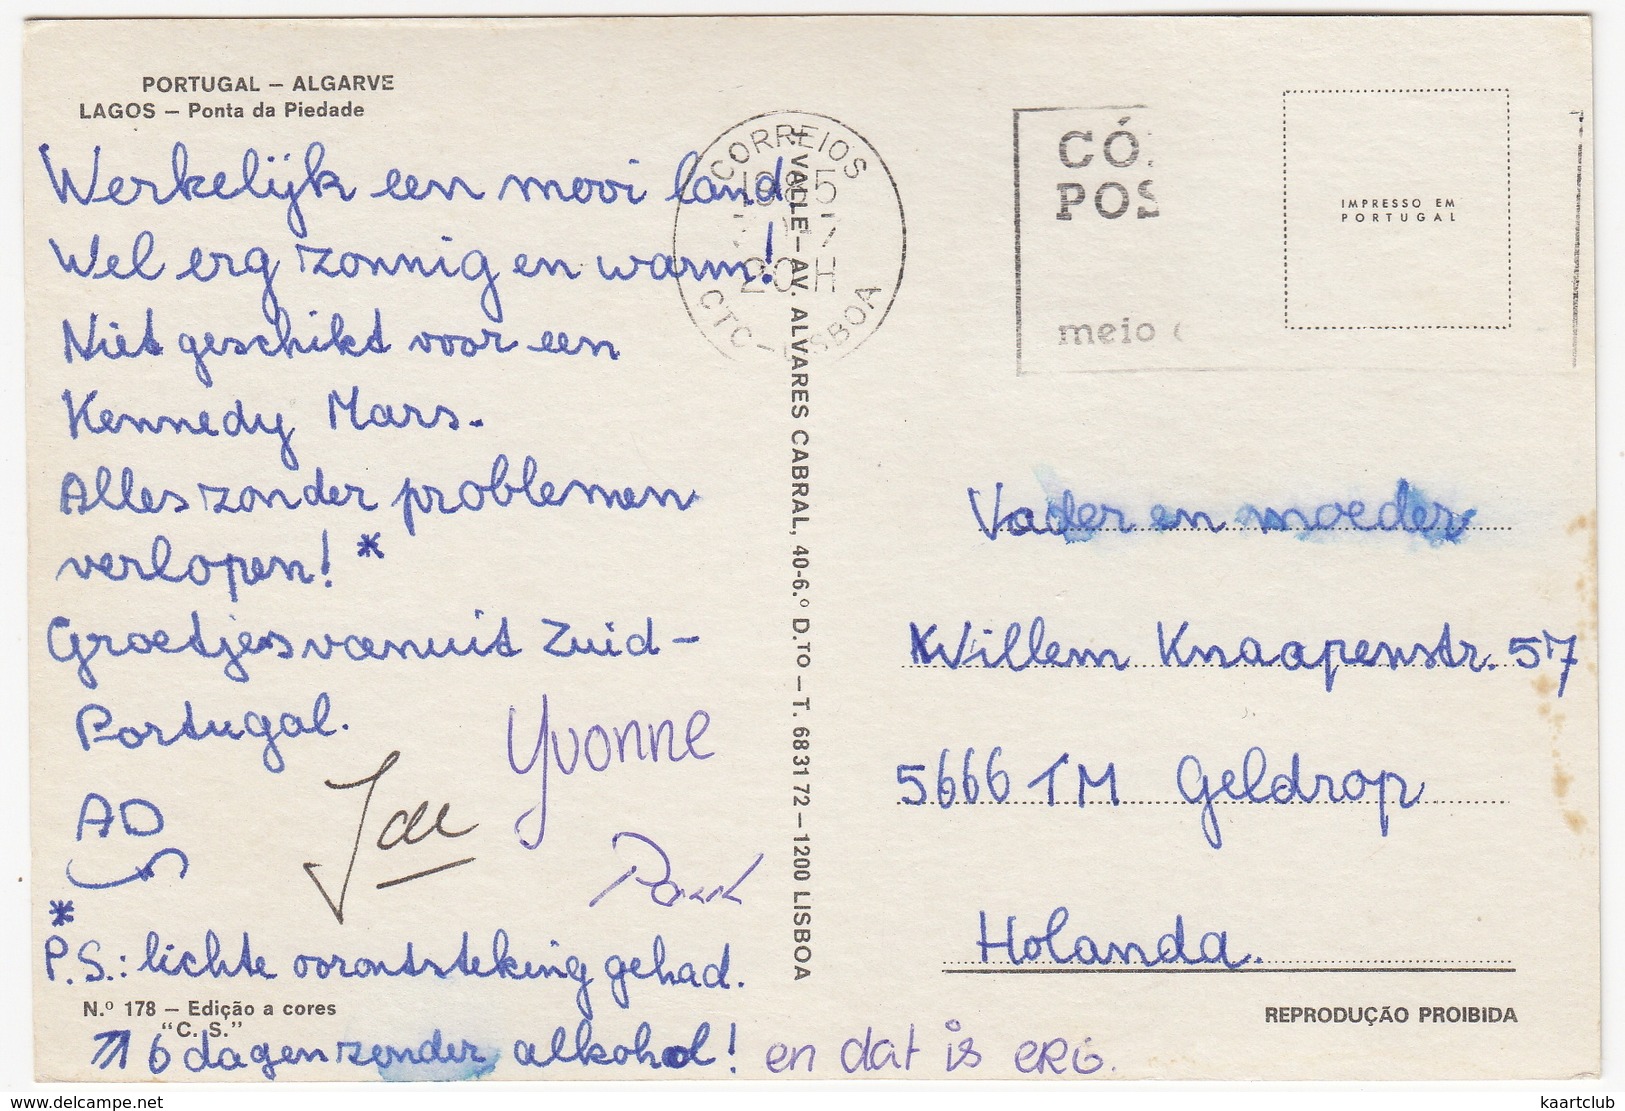 PORTUGAL – ALGARVE
LAGOS – Ponta da Piedade
Werkelijk een mooi land
Wel erg zonnig en warm!
Niet geschikt voor een
Kennedy Mars.
Alles zonder problemen
verlopen! *
Groetjes vanuit Zuid-
Portugal.
Yvonne
AD
*
P.S.: lichte oorontsteking gehad.
N.º 178 – Edição a cores
"C. S."
6 dagen zonder alkohol! en dat is ERG.
CORREIOS
1985
20H
CTC – LISBOA
VALLE – AV. ALVARES CABRAL, 40-6.º D.TO – T. 683172 – 1200 LISBOA
CÓ
POS
meio
IMPRESSO EM
PORTUGAL
Vader en moeder
Willem Knaapenstr. 57
5666 TM Geldrop
Holanda.
REPRODUÇÃO PROIBIDA
www.delcampe.net
kaartclub